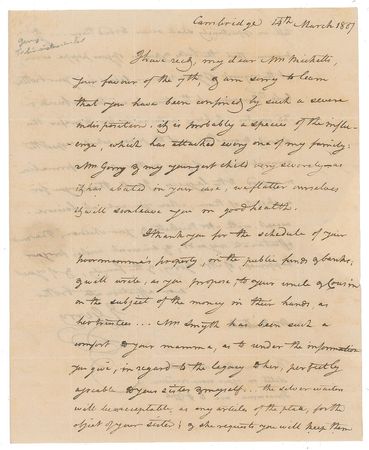 Cambridge 14th March 1807
I have recd, my dear Mrs
your favour of the 9th, & am sorry to learn
that you have been confined by such a severe
indisposition. it is probably a species of the influ-
enza, which has attacked every one of my family:
Mrs Gerry & my youngest child very severely. as
it has abated in your case, we flatter ourselves
it will soon leave you in good health.
I thank you for the schedule of your
mamma's property, in the public funds & banks,
& will write, as you propose, to your uncle & cousin
on the subject of the money in their hands as
her trustees... Mrs Smyth has been such a
comfort to your mamma, as to render the information
you give, in regard to the legacy to her, perfectly
agreable to your sister & myself... the silver waiter
will be acceptable, as any articles of the plate, for the
object of your sister; & she requests you will keep them